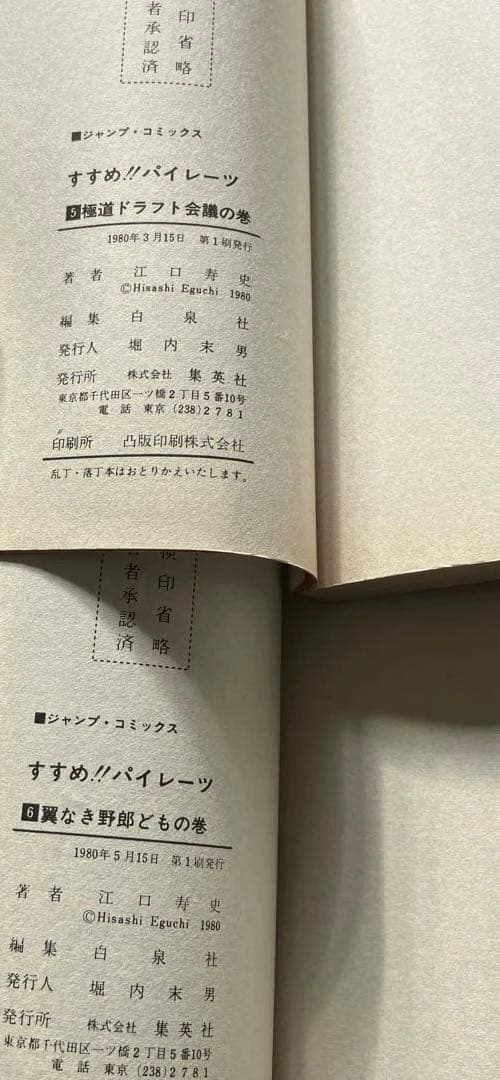 印省略
者承認済
■ジャンプ・コミックス
すすめ!!パイレーツ
5極道ドラフト会議の巻
1980年3月15日 第1刷発行
著者 江口寿史
©Hisashi Eguchi 1980
編集 白泉社
発行人 堀内末男
発行所 株式会社 集英社
東京都千代田区一ツ橋2丁目5番10号
電話 東京(238)2781
印刷所 凸版印刷株式会社
乱丁・落丁本はおとりかえいたします。
検印省略
者承認済
■ジャンプ・コミックス
すすめ!!パイレーツ
6翼なき野郎どもの巻
1980年5月15日 第1刷発行
著者 江口寿史
©Hisashi Eguchi 1980
編集 白泉社
発行人 堀内末男
発行所 株式会社 集英社
東京都千代田区一ツ橋2丁目5番10号
電話 東京(238)2781